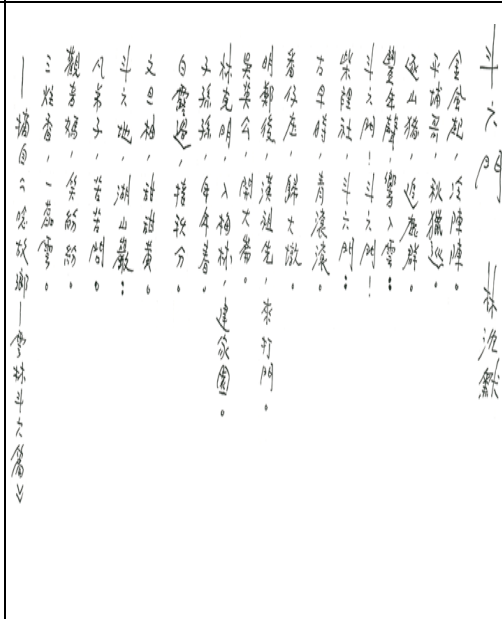 斗六門 林沈默
金風起,冷陣陣。
平埔哥,秋獵巡。
逐山豬,追鹿群。
雙年聲,響入雲:
斗六門!斗六門!
柴裡社,斗六門:
古早時,青滾滾。
番仔庄,歸大墩。
明鄭後,漢祖先,來打門。
吳英公,開大崙。
林克明,入梅林,建家園。
子孫孫,年年春。
白露過,接秋分。
文旦柚,甜甜黃。
斗六地,湖山巖:
凡弟子,苦苦問。
觀音媽,笑紛紛。
三炷香,一蕊雲。
——摘自《唸故鄉—雲林斗六篇》